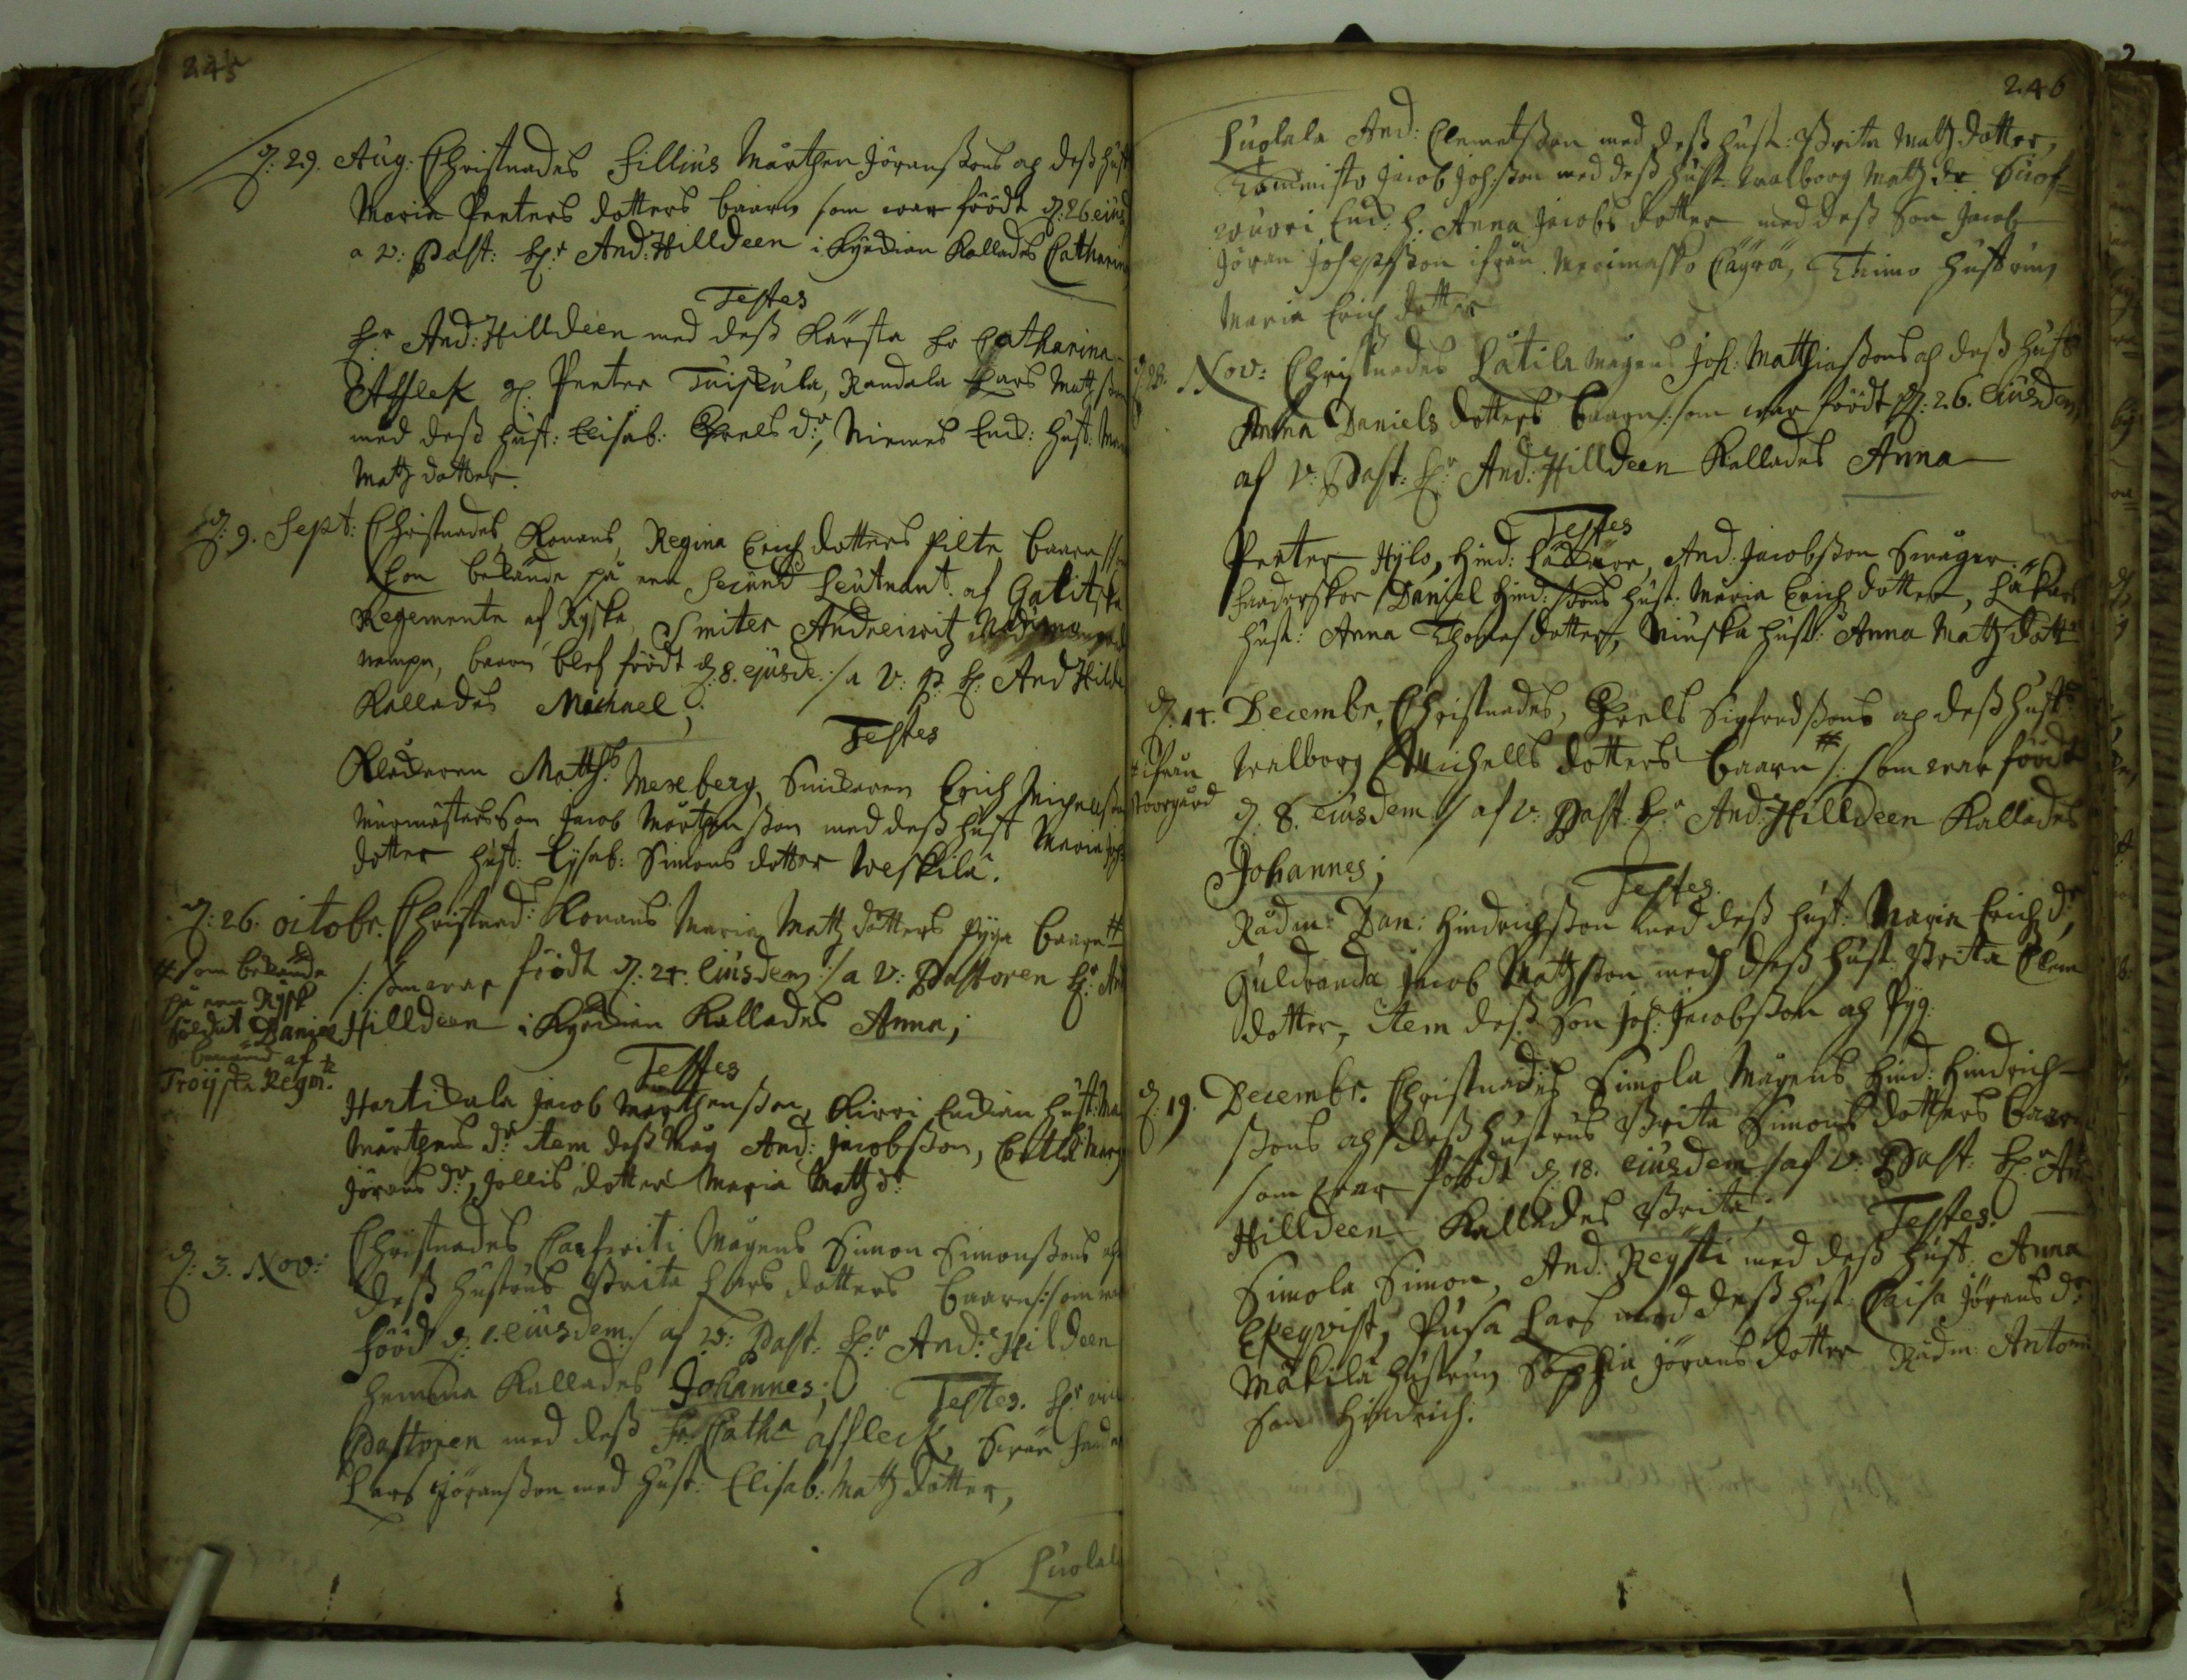 245
d: 29. Aug. Christnades Fillius Mårthen Jöranssons och dess hust
Maria Peeters dotters baarn som war föödt d: 26 eiusd
a V: Past: H:r And: Hilldeen i Kyrckian Kallades Catharina
Testes
H:r And: Hilldeen med dess Kärsta Fr Catharina
Affleck g: Peeter Tuiskula, Randala Lars Matzson
med dess hust: Elisab: Grels d:r, Niemes Enck: hust:
Matz dotter.
d: 9. Sept: Christnades Konans, Regina Erich dotters pilte baarn
hon bekände på een Secund Leutnant af Galitska
Regemente af Ryska, Smiter Andreiwitz
nempn, baarn blef föödt d: 8. ejusde:/ a V: P: H: And Hilde
Kallades Michael;
Testes
Klockaren Matth: Mexberg, Smickaren Erich Michellsson
Murmästars Son Jacob Mårthensson med dess hust Maria
dotter hust: Lysab: Simons dotter Weskila.
d: 26. octobr. Christnad: Konans Maria Matz dotters pyga baarn #
/: som war föödt d: 24. Eiusdem :/ a V: Pastoren H:r And
Hilldeen i Kyrckian Kallades Anna;
# som bekände
på een Rysk
Soldat Daniel
benämd af
Troijska Regm:te
Testes
Hartikala Jacob Mårthensson, Kirri Enckian hust: Ma
Mårthens d:r item dess Måg And: Jacobsson,
Jörans d:r, Jollis dotter Maria Matz d:
d: 3. Nov: Christnades Mågens Simon Simonssons och
dess hustrus Brita Lars dotters baarn /: som war
föödt d: 1. eiusdem :/ af V: Past: H:r And: Hildeen
hemma Kallades Johannes; Testes. H:r vic
Pastoren med dess Fr: Cath:a Affleck,
Lars Jöransson med hust: Elisab: Matz dotter,
Luolala
246
Luolala And: Clemetsson med dess hust: Brita Matz dotter,
Tommisto Jacob Joh:sson med dess hust. Walborg Matz dr
Enck: h. Anna Jacobs dotter med dess Son Jacob
Jöran Josepsson ifrån Merimasko Thimo hustrun,
Maria Erich dotter
d. 28. Nov: Christnades Lätila Mågens Joh: Matthiassons och dess hust
Anna Daniels dotters baarn /: som war föödt d: 26. Eiusdem
af V: Past: H:r And: Hilldeen Kallades Anna
Testes
Peeter Hylo, Hind: And: Jacobsson Swåger
Daniel Hind:ssons hust: Maria Erich dotter,
hust: Anna Thomas dotter, Niuska hust: Anna Matz dott
d: 14. Decembr, Christnades, Grels Sigfredssons och dess hust
Walborg Michells dotters baarn # /: som war föödt
# ifrån
Stoorgård
d. 8. eiusdem :/ af V: Past. H:r And: Hilldeen Kallades
Johannes;
Testes.
Rådm: Dan: Hindrichsson med dess hust: Maria Erich d:r,
Guldranda Jacob Matzsson med dess hust. Brita Clem
dotter, item dess Son Joh: Jacobsson och Pyg.
d: 19. Decembr. Christnades Simola Mågens Hind: Hindrich-
ssons och dess hustrus Brita Simons dotters baarn
som war föödt d. 18. eiusdem :/ af V: Past: H:r An
Hilldeen Kallades Brita, Testes.
Simola Simon, And: Reysti med dess hust. Anna
Ekeqvist, Pusa Lars med dess hust Caisa Jörans d:r
Mäkilä hustrun Sophia Jörans dotter Rådm: Antoni
Son Hindrich.